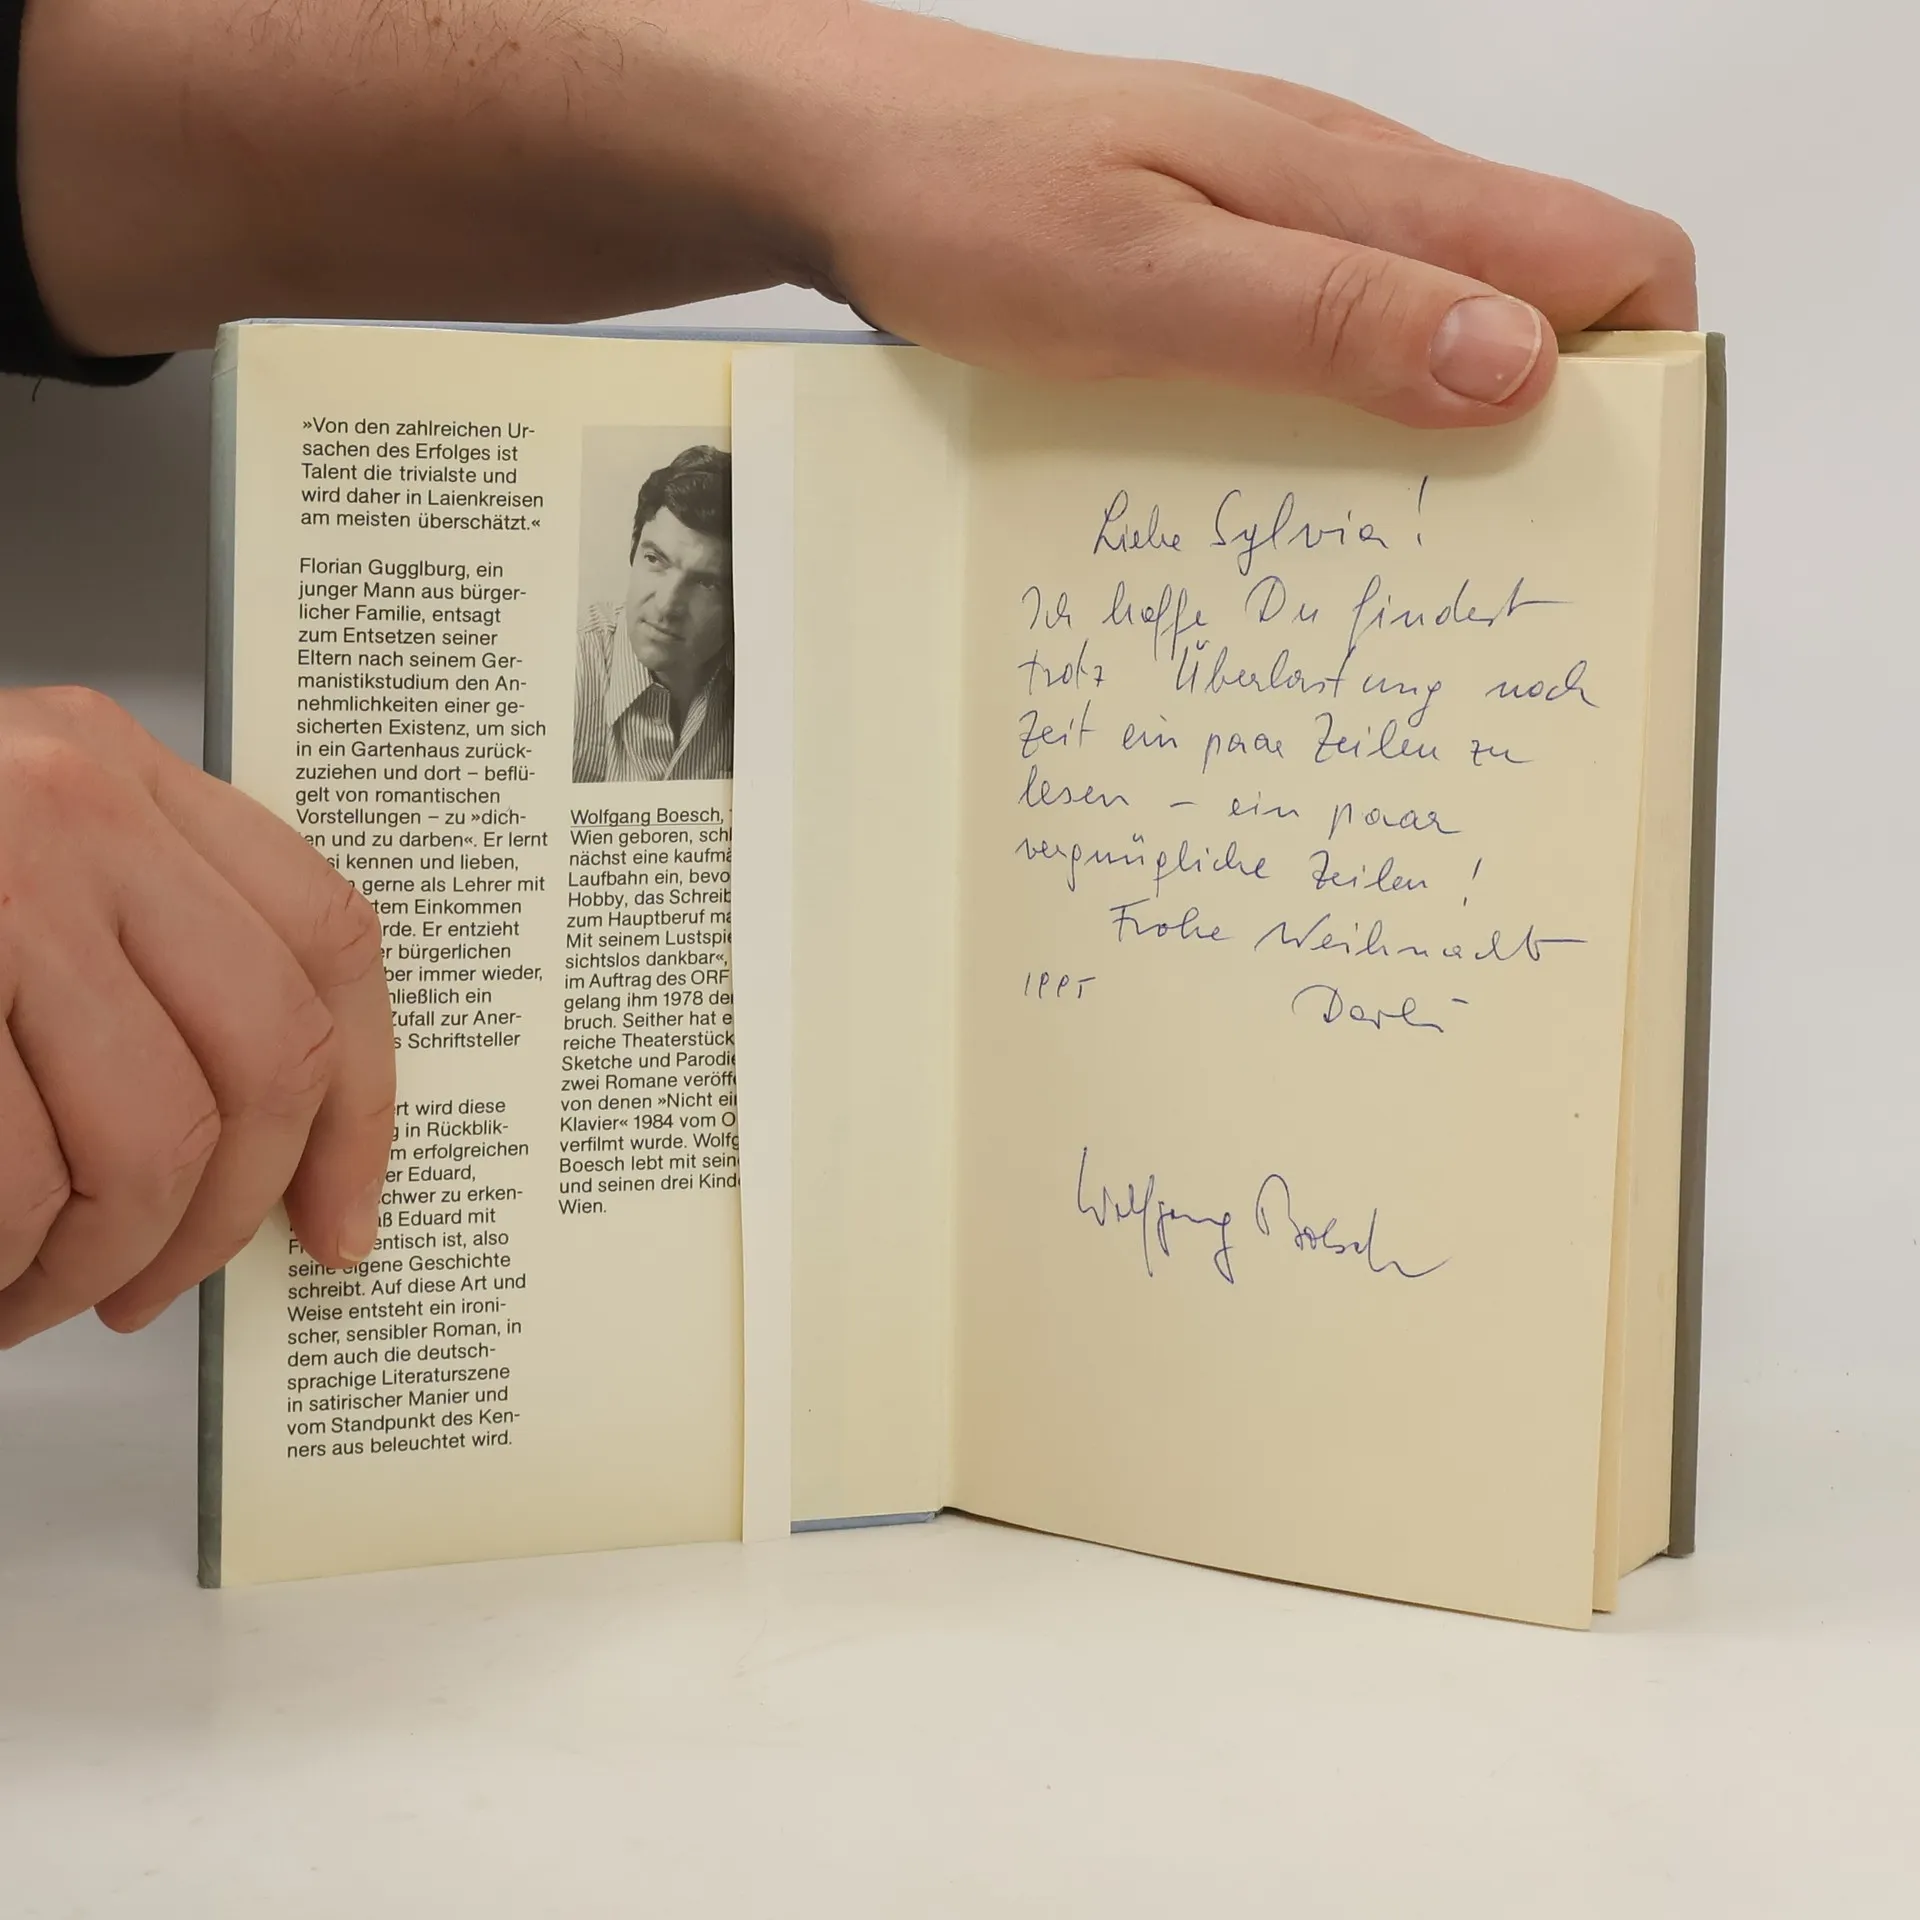 »Von den zahlreichen Ur-
sachen des Erfolges ist
Talent die trivialste und
wird daher in Laienkreisen
am meisten überschätzt.«
Florian Gugglburg, ein
junger Mann aus bürger-
licher Familie, entsagt
zum Entsetzen seiner
Eltern nach seinem Ger-
manistikstudium den An-
nehmlichkeiten einer ge-
sicherten Existenz, um sich
in ein Gartenhaus zurück-
zuziehen und dort – beflü-
gelt von romantischen
Vorstellungen – zu »dich-
en und zu darben«. Er lernt
si kennen und lieben,
gerne als Lehrer mit
tem Einkommen
rde. Er entzieht
er bürgerlichen
ber immer wieder,
hließlich ein
Zufall zur Aner-
s Schriftsteller
rt wird diese
g in Rückblik-
m erfolgreichen
er Eduard,
chwer zu erken-
aß Eduard mit
entisch ist, also
seine eigene Geschichte
schreibt. Auf diese Art und
Weise entsteht ein ironi-
scher, sensibler Roman, in
dem auch die deutsch-
sprachige Literaturszene
in satirischer Manier und
vom Standpunkt des Ken-
ners aus beleuchtet wird.
Wolfgang Boesch,
Wien geboren, schl
nächst eine kaufmä
Laufbahn ein, bevo
Hobby, das Schreib
zum Hauptberuf ma
Mit seinem Lustspie
sichtslos dankbar«,
im Auftrag des ORF
gelang ihm 1978 der
bruch. Seither hat e
reiche Theaterstück
Sketche und Parodie
zwei Romane veröff
von denen »Nicht ein
Klavier« 1984 vom O
verfilmt wurde. Wolfg
Boesch lebt mit sein
und seinen drei Kind
Wien.
Liebe Sylvia!
Ich hoffe Du findest
trotz Überlastung noch
Zeit ein paar Zeilen zu
lesen – ein paar
vergnügliche Zeilen!
Frohe Weihnacht
1995
Wolfgang Boesch